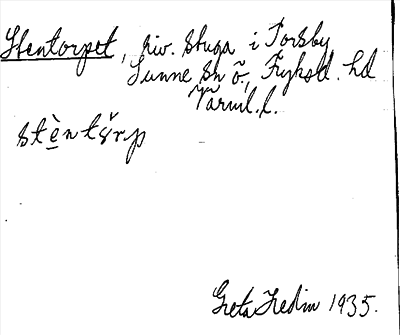 Stentorpet, riv. stuga i Torsby
Sunne sn ö., Fryksd. hd
Värml. l.
stèntŏrp
Greta Hedin 1935.